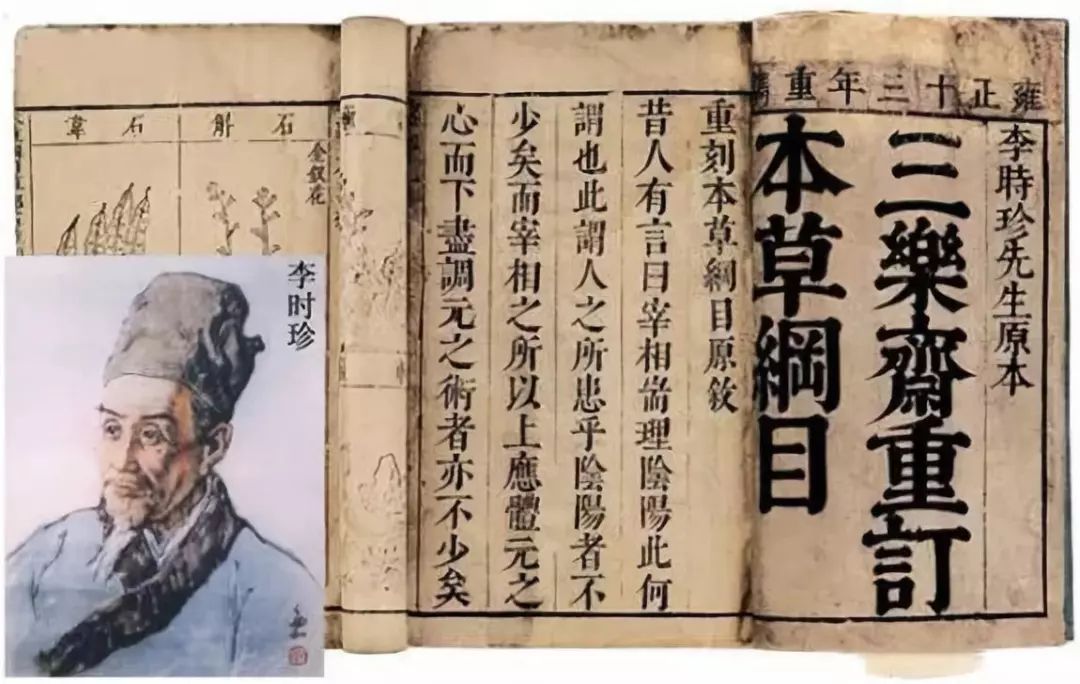 雍正十三年重鐫
李時珍先生原本
三樂齋重訂
本草綱目
重刻本草綱目原敘
昔人有言曰宰相耑理陰陽此何
謂也此謂人之所患乎陰陽者不
少矣而宰相之所以上應體元之
心而下盡調元之術者亦不少矣
石斛
金釵花
石韋
李时珍